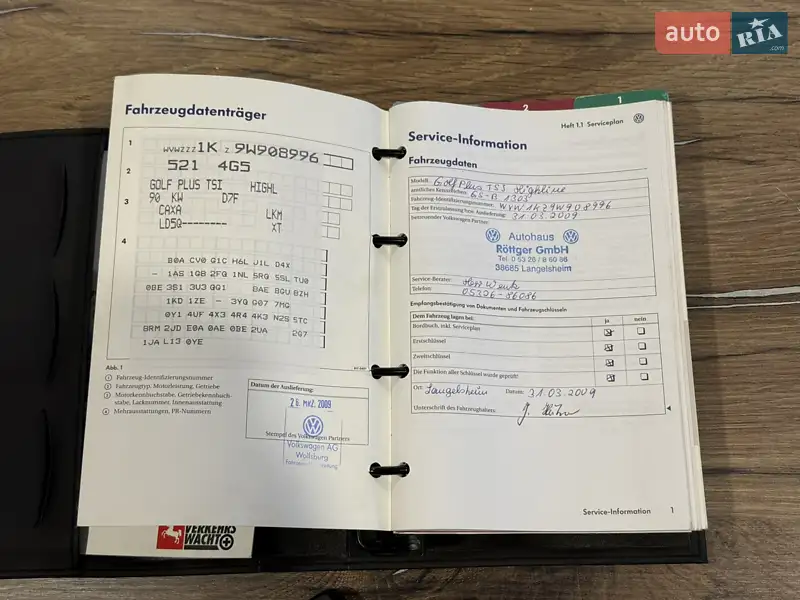 auto RIA .com
Fahrzeugdatenträger
1
VWVWZZZ1K Z 9W908996
521 4G5
2
GOLF PLUS TSI HIGHL
90 KW D7F
3
CAXA LKM
LD5Q-------- XT
4
B0A CV0 G1C H6L U1L D4X
- 1AS 1QB 2FQ 1NL 5RQ 5SL TU0
0BE 3S1 3U3 QQ1 BAE 8GU 8ZH
1KD 1ZE - 3YQ 907 7MG
0Y1 4UF 4X3 4R4 4K3 N2S 5TC
BRM 2JD E0A 0AE 0BE 2UA 2G7
1JA L13 0YE
Abb. 1
1 Fahrzeug-Identifizierungsnummer
2 Fahrzeugtyp, Motorleistung, Getriebe
3 Motorkennbuchstabe, Getriebekennbuchstabe, Lacknummer, Innenausstattung
4 Mehrausstattungen, PR-Nummern
Datum der Auslieferung:
26. MRZ. 2009
Stempel des Volkswagen Partners
Volkswagen AG
Wolfsburg
VERKEHRS
WACHT
2
1
Heft 1.1 Serviceplan
Service-Information
Fahrzeugdaten
Modell: Golf Plus TSI Highline
amtliches Kennzeichen: GS-B 1303
Fahrzeug-Identifizierungsnummer: WVWZZZ1KZ9W908996
Tag der Erstzulassung bzw. Auslieferung: 31.03.2009
betreuender Volkswagen Partner:
Autohaus
Röttger GmbH
Tel. 0 53 26 / 8 60 86
38685 Langelsheim
Service-Berater: Herr Wenk
Telefon: 05326-86086
Empfangsbestätigung von Dokumenten und Fahrzeugschlüsseln
Dem Fahrzeug lagen bei: ja nein
Bordbuch, inkl. Serviceplan
Erstschlüssel
Zweitschlüssel
Die Funktion aller Schlüssel wurde geprüft
Ort: Langelsheim Datum: 31.03.2009
Unterschrift des Fahrzeughalters:
Service-Information 1